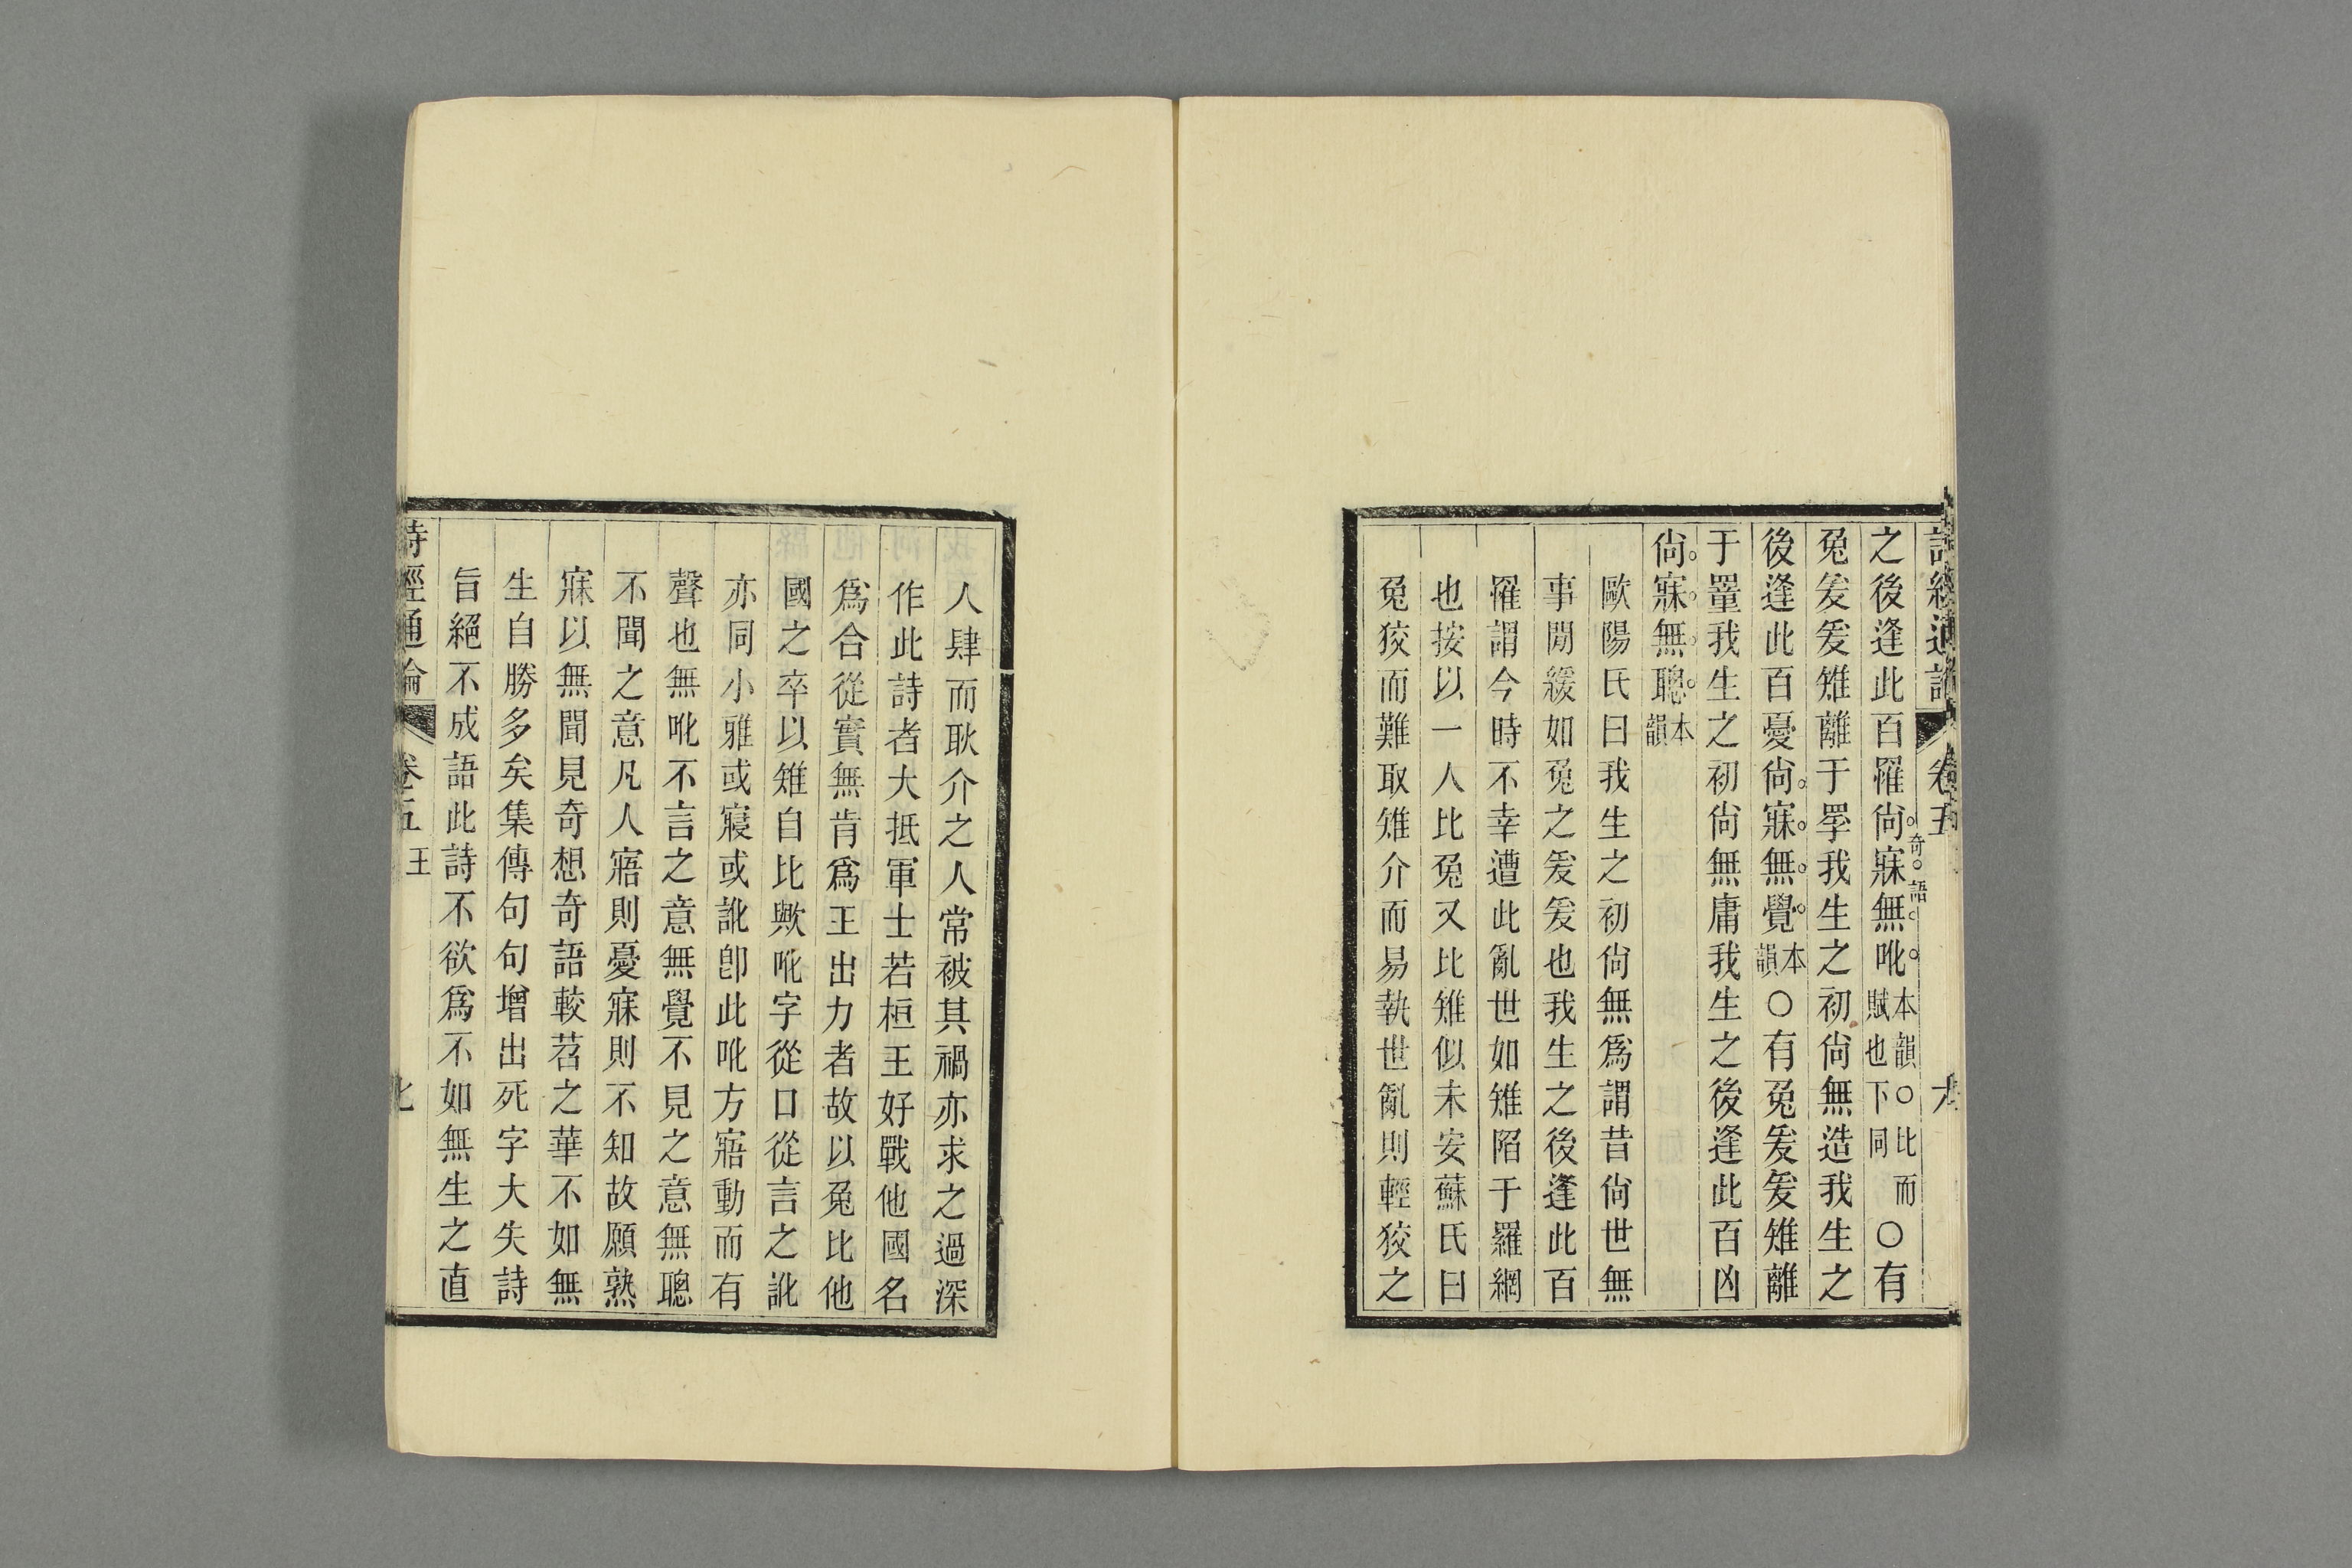 詩經通論 卷五 六
之後逢此百罹尙寐無吪本韻○比而賦也下同○有
奇語
兔爰爰雉離于罦我生之初尙無造我生之
後逢此百憂尙寐無覺本韻○有兔爰爰雉離
于罿我生之初尙無庸我生之後逢此百凶
尙寐無聰本韻
歐陽氏曰我生之初尙無爲謂昔尙世無
事閒緩如兔之爰爰也我生之後逢此百
罹謂今時不幸遭此亂世如雉陷于羅網
也按以一人比兔又比雉似未安蘇氏曰
兔狡而難取雉介而易執世亂則輕狡之
人肆而耿介之人常被其禍亦求之過深
作此詩者大抵軍士若桓王好戰他國名
爲合從實無肯爲王出力者故以兔比他
國之卒以雉自比歟吪字從口從言之訛
亦同小雅或寢或訛卽此吪方寤動而有
聲也無吪不言之意無覺不見之意無聰
不聞之意凡人寤則憂寐則不知故願熟
寐以無聞見奇想奇語較苕之華不如無
生自勝多矣集傳句句增出死字大失詩
旨絕不成語此詩不欲爲不如無生之直
詩經通論 卷五 王